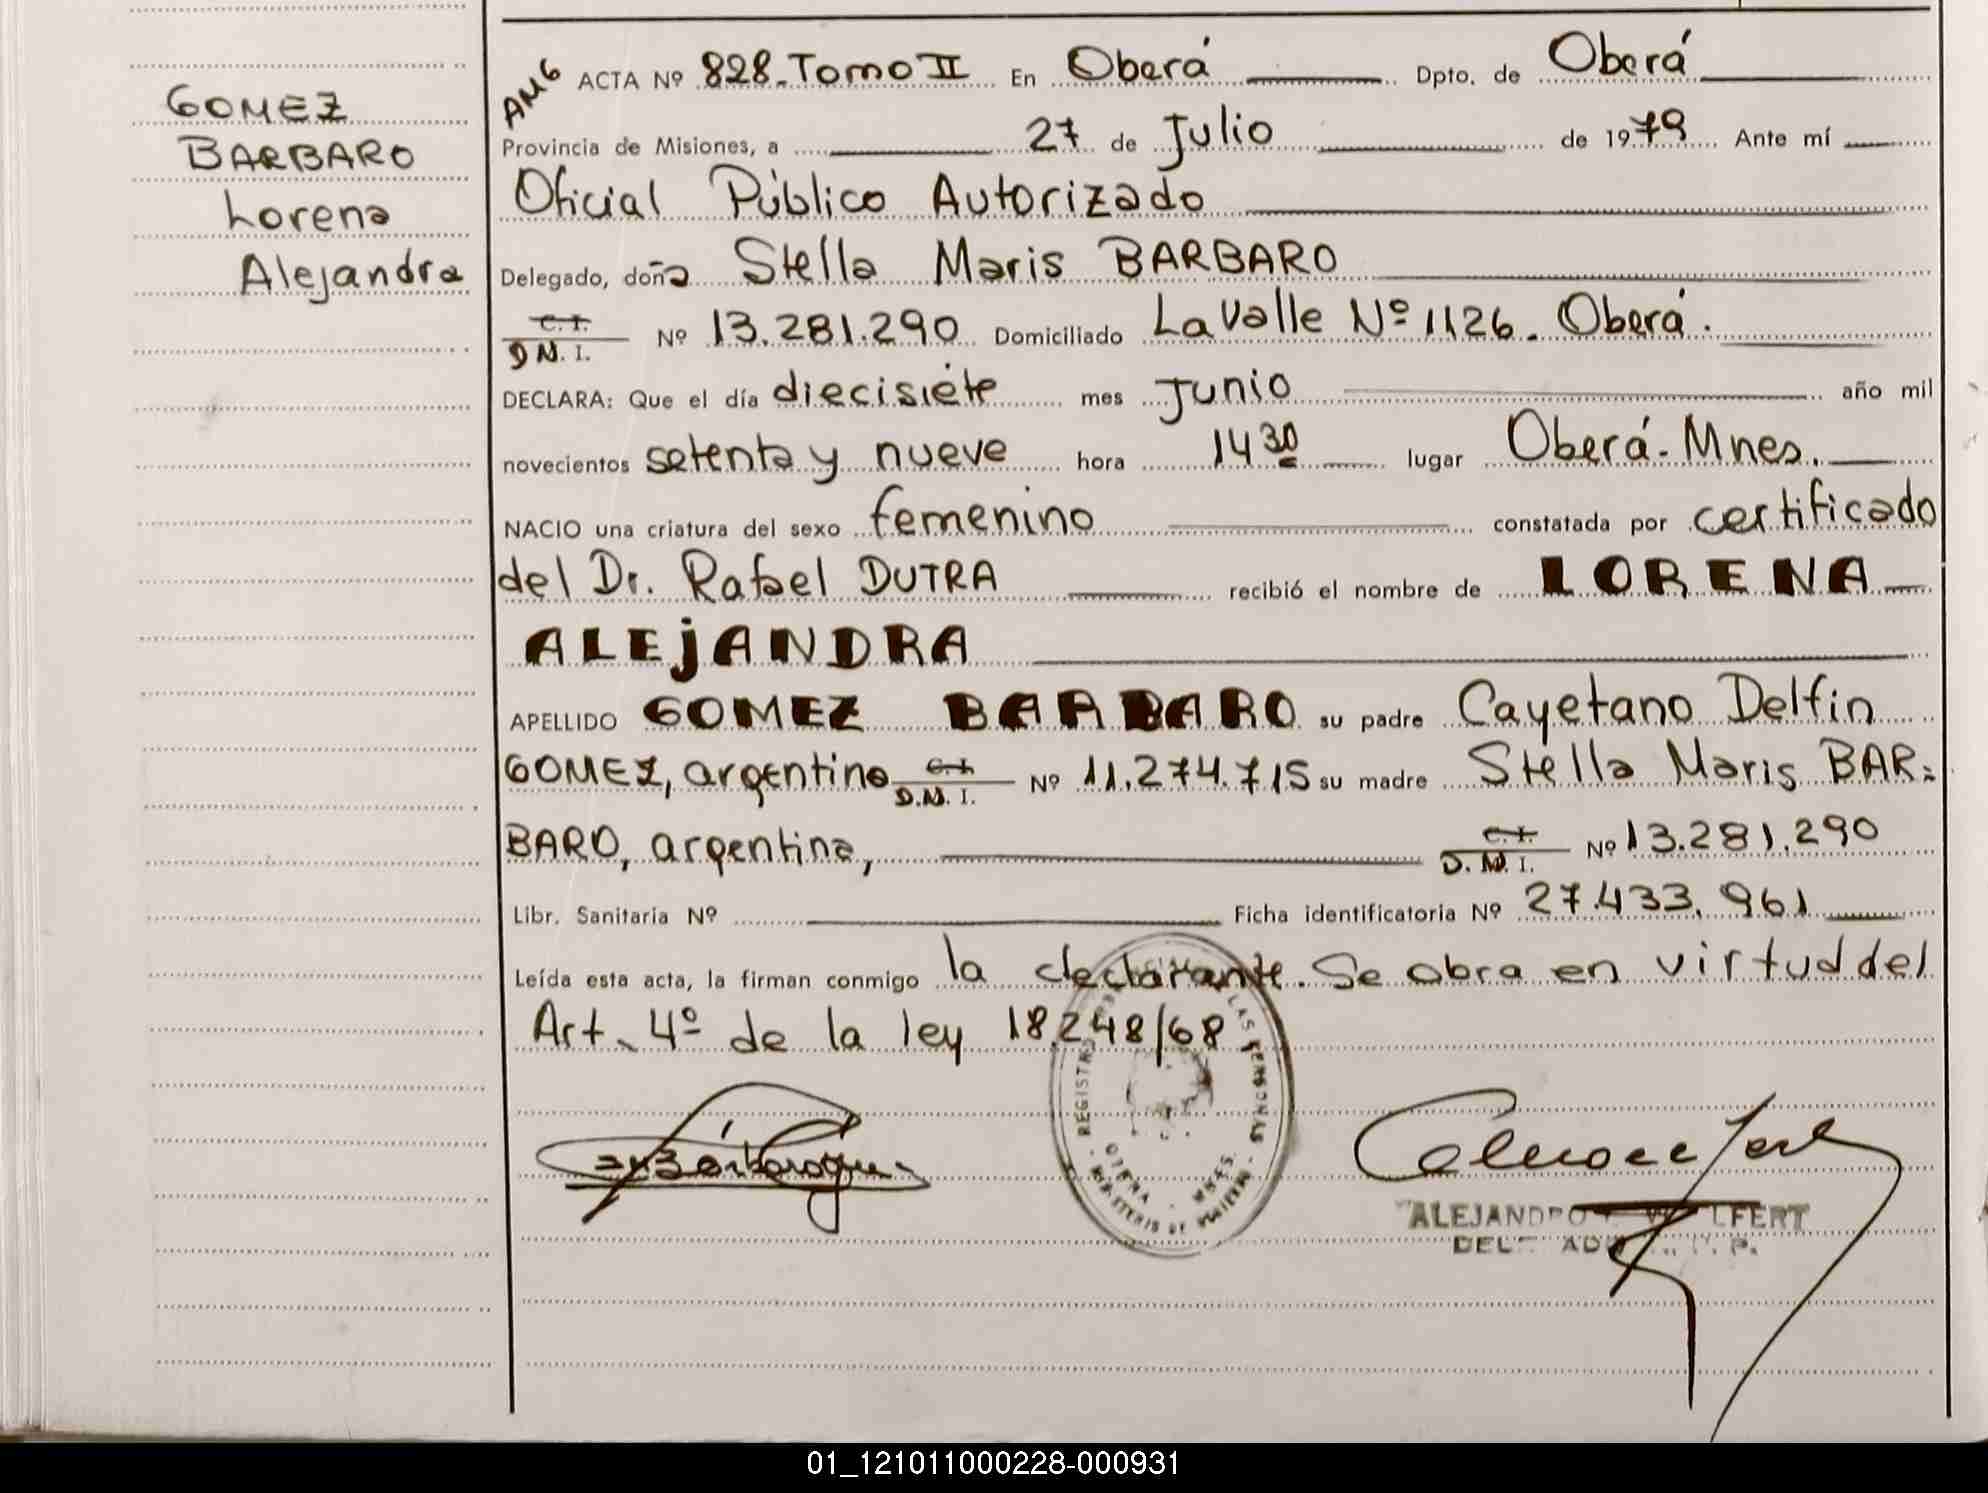 GOMEZ
BARBARO
Lorena
Alejandra
AMG ACTA Nº 828. Tomo II En Oberá Dpto. de Oberá
Provincia de Misiones, a 27 de Julio de 1979 Ante mí
Oficial Público Autorizado
Delegado, doña Stella Maris BARBARO
C.I.
D.N.I. Nº 13.281.290 Domiciliado Lavalle Nº 1126. Oberá.
DECLARA: Que el día diecisiete mes Junio año mil
novecientos setenta y nueve hora 14 30 lugar Oberá-Mnes.
NACIO una criatura del sexo femenino constatada por certificado
del Dr. Rafael DUTRA recibió el nombre de LORENA
ALEJANDRA
APELLIDO GOMEZ BARBARO su padre Cayetano Delfin
GOMEZ, argentino C.I. D.N.I. Nº 11.274.715 su madre Stella Maris BAR=
BARO, argentina, C.I. D.N.I. Nº 13.281.290
Libr. Sanitaria Nº Ficha identificatoria Nº 27.433.961
Leída esta acta, la firman conmigo la declarante. Se obra en virtud del
Art. 4º de la ley 18.248/68.
REGISTRO LAS PERSONAS
OBERA - MNES.
ALEJANDRO
01_121011000228-000931